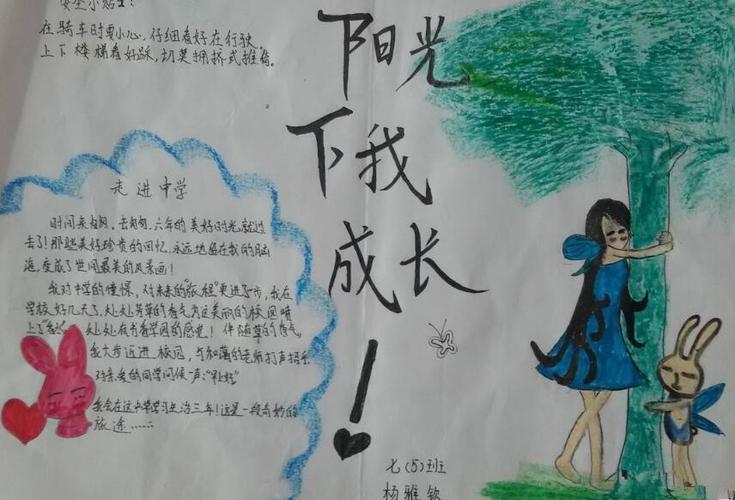 安全小贴士:
在骑车时要小心,仔细看好在行驶。
上下楼梯看好踩,切莫拥挤式推
阳光
下我
成长
!
走进中学
时间来匆匆,去匆匆,六年的美好时光就过
去了!那些美好珍贵的回忆,永远地留在我的脑
海,变成了世间最美的风景画!
我对中学的憧憬,对未来的"旅程"更进了步,我在
学校好几天了,处处芳草的香气为这美丽的校园晴
上了 处处在有着学园的感觉!伴随草的香气。
我大步迈进校园,与和蔼的老师打声招乎
对亲爱的同学问候声:"早好"
我会在这中学学习生活三年!这是一段奇妙的
旅途……
七(5)班
杨雅钦